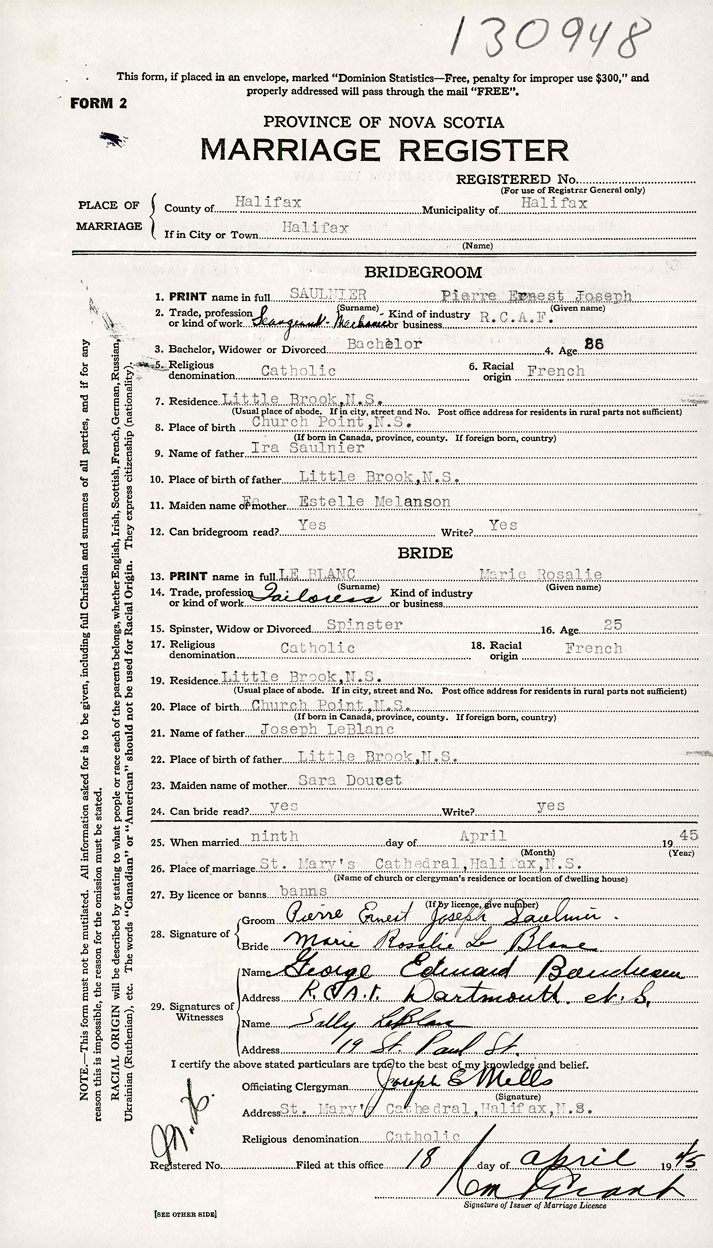 130948
This form, if placed in an envelope, marked "Dominion Statistics—Free, penalty for improper use $300," and
properly addressed will pass through the mail "FREE".
FORM 2
PROVINCE OF NOVA SCOTIA
MARRIAGE REGISTER
REGISTERED No.
(For use of Registrar General only)
PLACE OF MARRIAGE
County of Halifax Municipality of Halifax
If in City or Town Halifax
(Name)
BRIDEGROOM
1. PRINT name in full SAULNIER Pierre Ernest Joseph
(Surname) (Given name)
2. Trade, profession or kind of work Seargeant Mechanic Kind of industry or business R.C.A.F.
3. Bachelor, Widower or Divorced Bachelor 4. Age 26
5. Religious denomination Catholic 6. Racial origin French
7. Residence Little Brook,N.S.
(Usual place of abode. If in city, street and No. Post office address for residents in rural parts not sufficient)
8. Place of birth Church Point,N.S.
(If born in Canada, province, county. If foreign born, country)
9. Name of father Ira Saulnier
10. Place of birth of father Little Brook,N.S.
11. Maiden name of mother Estelle Melanson
12. Can bridegroom read? Yes Write? Yes
BRIDE
13. PRINT name in full LE BLANC Marie Rosalie
(Surname) (Given name)
14. Trade, profession or kind of work Tailoress Kind of industry or business
15. Spinster, Widow or Divorced Spinster 16. Age 25
17. Religious denomination Catholic 18. Racial origin French
19. Residence Little Brook,N.S.
(Usual place of abode. If in city, street and No. Post office address for residents in rural parts not sufficient)
20. Place of birth Church Point,N.S.
(If born in Canada, province, county. If foreign born, country)
21. Name of father Joseph LeBlanc
22. Place of birth of father Little Brook,N.S.
23. Maiden name of mother Sara Doucet
24. Can bride read? yes Write? yes
25. When married ninth day of April 19 45
(Month) (Year)
26. Place of marriage St. Mary's Cathedral,Halifax,N.S.
(Name of church or clergyman's residence or location of dwelling house)
27. By licence or banns banns
(If by licence, give number)
28. Signature of
Groom Pierre Ernest Joseph Saulnier.
Bride Marie Rosalie Le Blanc
29. Signatures of Witnesses
Name George Edward Boudreau
Address R.C.A.F. Dartmouth N.S.
Name Sally LeBlanc
Address 19 St. Paul St.
I certify the above stated particulars are true to the best of my knowledge and belief.
Officiating Clergyman Joseph E Mills
(Signature)
Address St. Mary's Cathedral,Halifax,N.S.
Religious denomination Catholic
Registered No. Filed at this office 18 day of April 19 45
Signature of Issuer of Marriage Licence
[SEE OTHER SIDE]
NOTE.—This form must not be mutilated. All information asked for is to be given, including full Christian and surnames of all parties, and if for any
reason this is impossible, the reason for the omission must be stated.
RACIAL ORIGIN will be described by stating to what people or race each of the parents belongs, whether English, Irish, Scottish, French, German, Russian,
Ukrainian (Ruthenian), etc. The words "Canadian" or "American" should not be used for Racial Origin. They express citizenship (nationality).